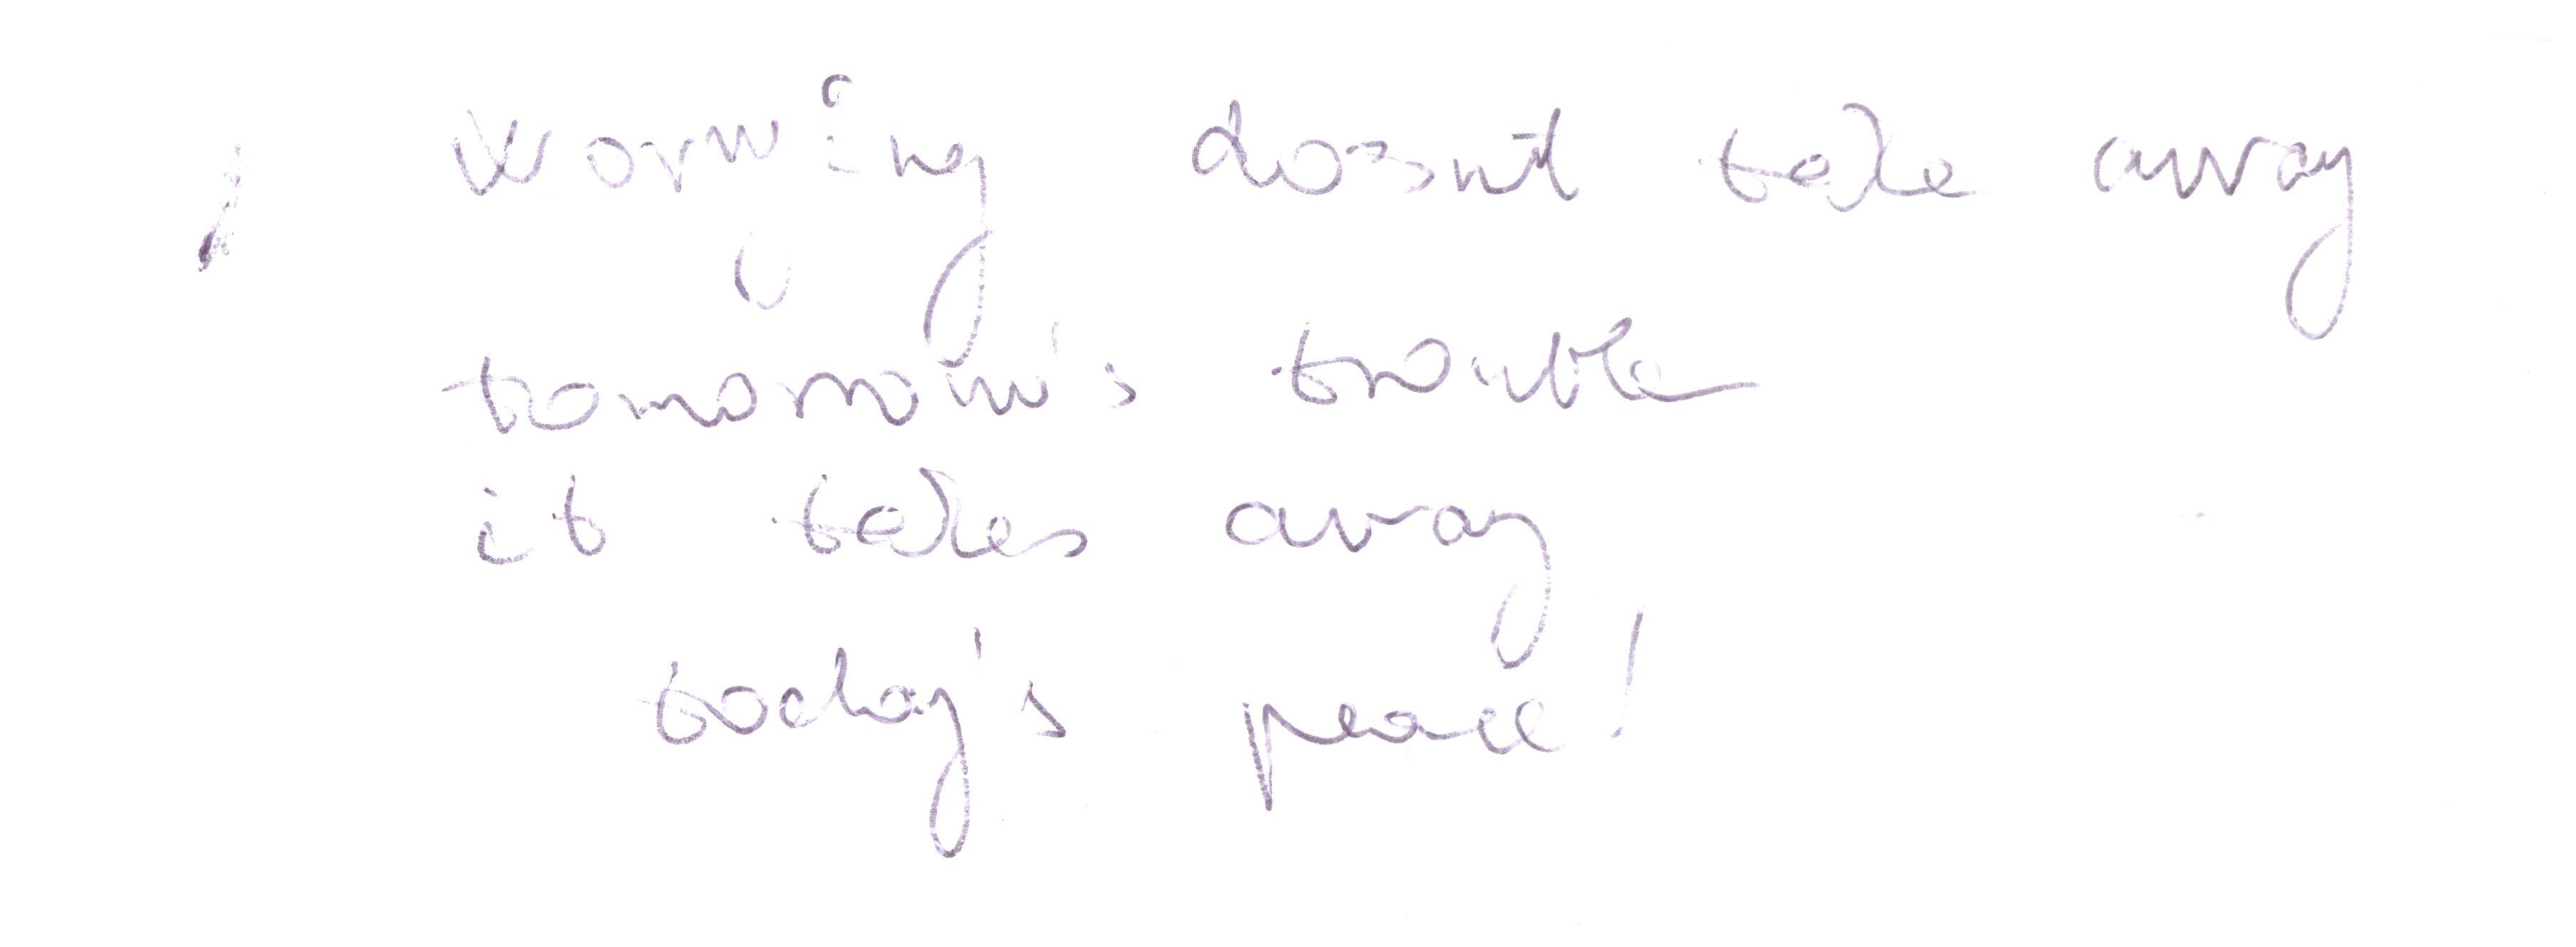 worrying doesn't take away
tomorrow's trouble
it takes away
today's peace!